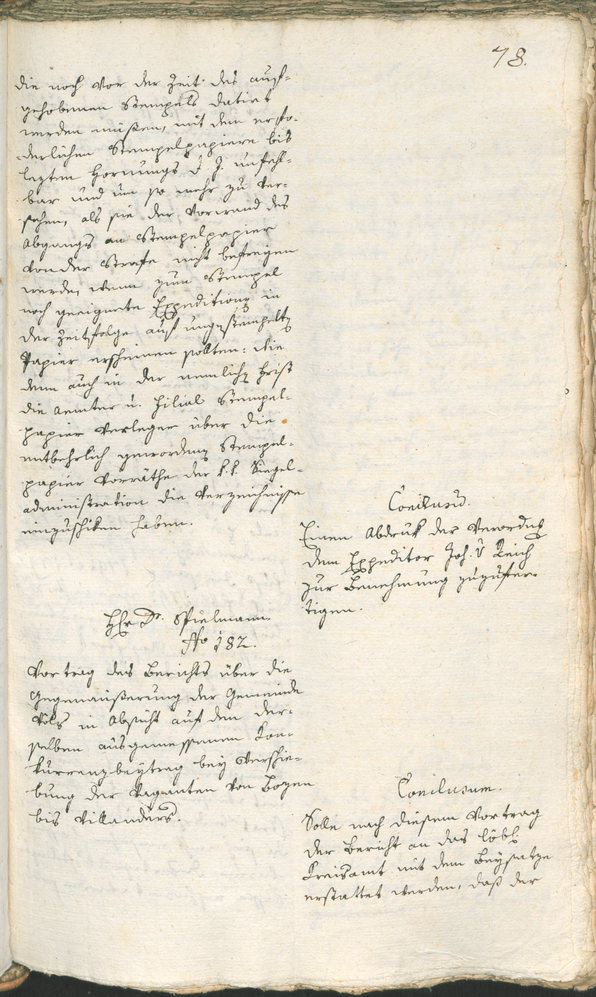 78.
die noch vor der Zeit des auf-
gehobenen Stempels datiert
werden müßen, mit dem erfo-
derlichen Stempelpapiere bis
lezten Hornungs d. J. unfehl-
bar und um so mehr zu ver-
sehen, als sie der Vorwand des
Abgangs an Stempelpapier
von der Strafe nicht befreyen
werde, wenn zum Stempel
noch geeignete Expeditions in
der Zeitfolge auf ungestempelten
Papier erscheinen sollten: Wie
denn auch in der nemlichen Frist
die Aemter u. Filial Stempel-
papier Verleger über die
entbehrlich gewordenen Stempel-
papier Vorräthe der k.k. Siegel-
administration die Verzeichnisse
einzuschiken haben.
Conclusum.
Einen Abdruk der Verordnung
dem Expeditor Joh. v Reich
zur Benehmung zuzufer-
tigen.
Hr. Dr. Spielmann
No 182.
Vortrag des Berichts über die
Gegenäußerung der Gemeinde
Vils in Absicht auf den der-
selben ausgemessenen Kon-
kurrenzbeytrag bey Verschie-
bung der Vaganten von Bozen
bis Villanders.
Conclusum.
Solle nach diesem Vortrag
der Bericht an das löbl.
Kreisamt mit dem Beysatze
erstattet werden, daß der